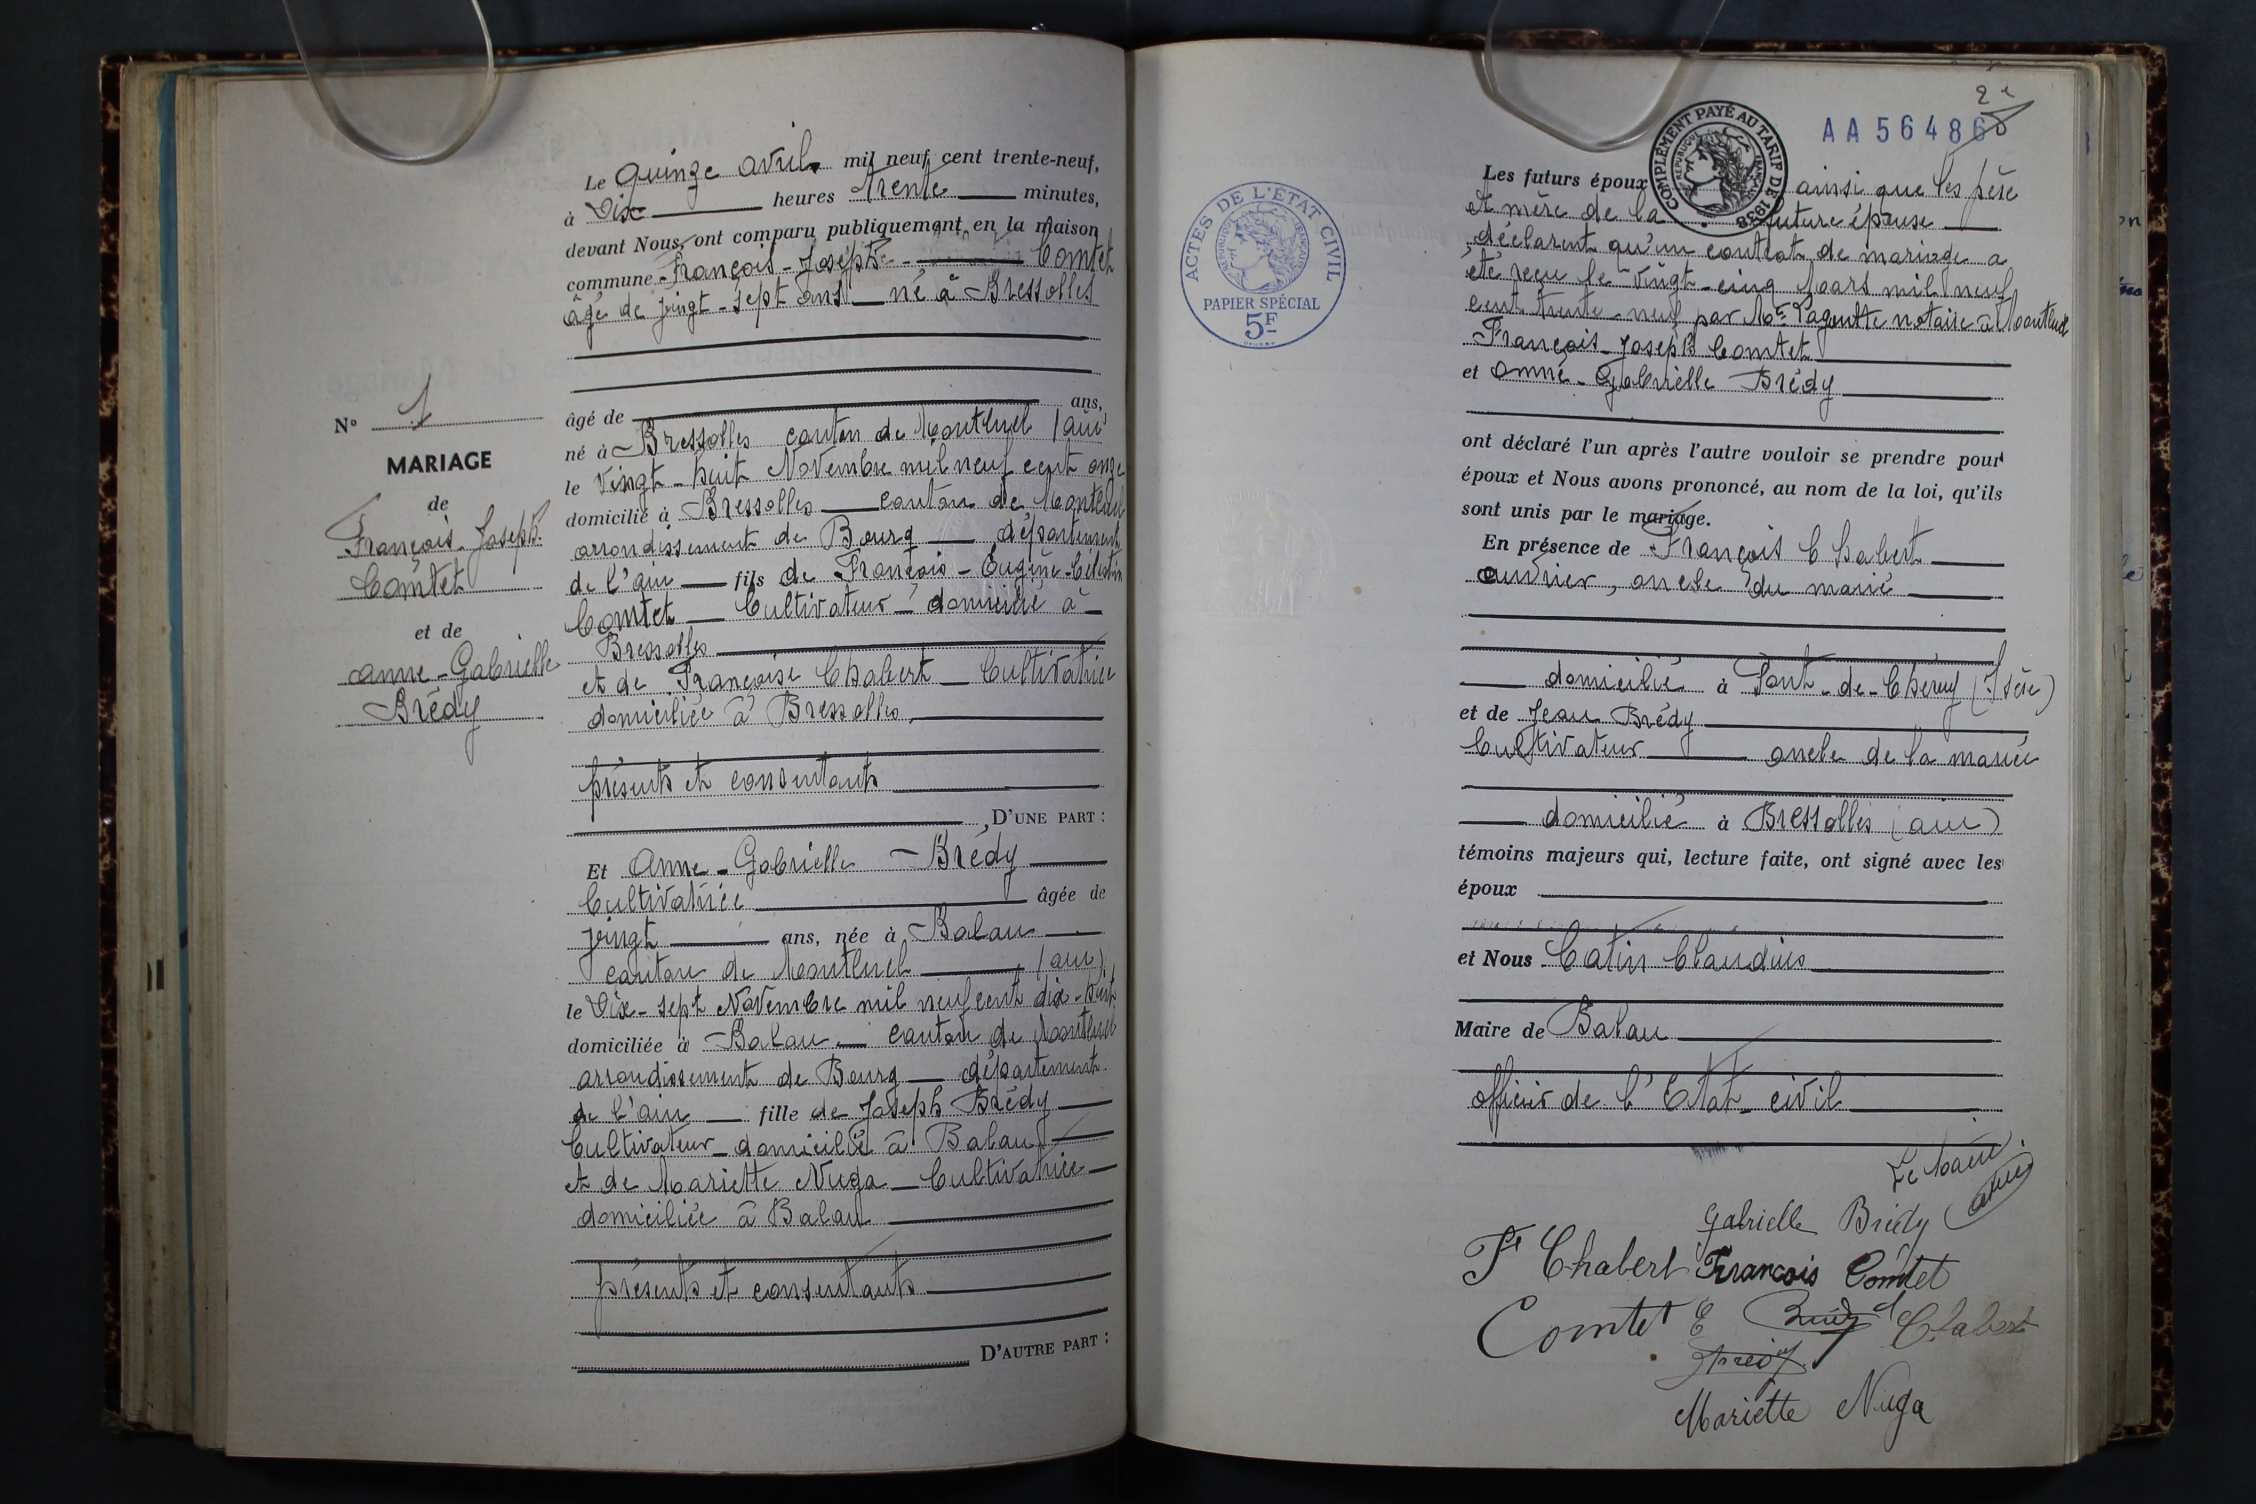 Le Quinze avril mil neuf cent trente-neuf,
à Dix heures trente minutes,
devant Nous, ont comparu publiquement en la maison
commune François-Joseph Comtet
âgé de vingt-sept ans né à Bressolles
âgé de ans,
né à Bressolles canton de Montluel (ain)
le vingt-huit Novembre mil neuf cent onze
domicilié à Bressolles canton de Montluel
arrondissement de Bourg département
de l'ain fils de François-Eugène-Célestin
Comtet Cultivateur domicilié à
Bressolles
et de Françoise Chabert Cultivatrice
domiciliée à Bressolles
présents et consentants
, D'UNE PART :
Et Anne-Gabrielle Brédy
Cultivatrice âgée de
vingt ans, née à Balan
canton de Montluel (ain)
le Dix-sept Novembre mil neuf cent dix-huit
domiciliée à Balan canton de Montluel
arrondissement de Bourg département
de l'ain fille de Joseph Brédy
Cultivateur domicilié à Balan
et de Mariette Nuga Cultivatrice
domiciliée à Balan
présents et consentants
D'AUTRE PART :
N° 1
MARIAGE
de
François-Joseph
Comtet
et de
Anne-Gabrielle
Brédy
ACTES DE L'ÉTAT CIVIL
RÉPUBLIQUE FRANÇAISE
PAPIER SPÉCIAL
5F
2e
AA 56486
COMPLÉMENT PAYÉ AU TARIF DE 1938
RÉPUBLIQUE FRANÇAISE
Les futurs époux ainsi que les père
et mère de la future épouse
déclarent qu'un contrat de mariage a
été reçu le vingt-cinq Mars mil neuf
cent trente-neuf par Me notaire à Montluel
François-Joseph Comtet
et Anne-Gabrielle Brédy
ont déclaré l'un après l'autre vouloir se prendre pour
époux et Nous avons prononcé, au nom de la loi, qu'ils
sont unis par le mariage.
En présence de François Chabert
ouvrier, oncle du marié
domicilié à Pont-de-Chéruy (Isère)
et de Jean Brédy
Cultivateur oncle de la mariée
domicilié à Bressolles (ain)
témoins majeurs qui, lecture faite, ont signé avec les
époux
et Nous Catin Claudius
Maire de Balan
officier de l'Etat-civil
Le Maire
Catin
Gabrielle Brédy
F Chabert François Comtet
Comtet E Brédy Chabert
Brédy
Mariette Nuga